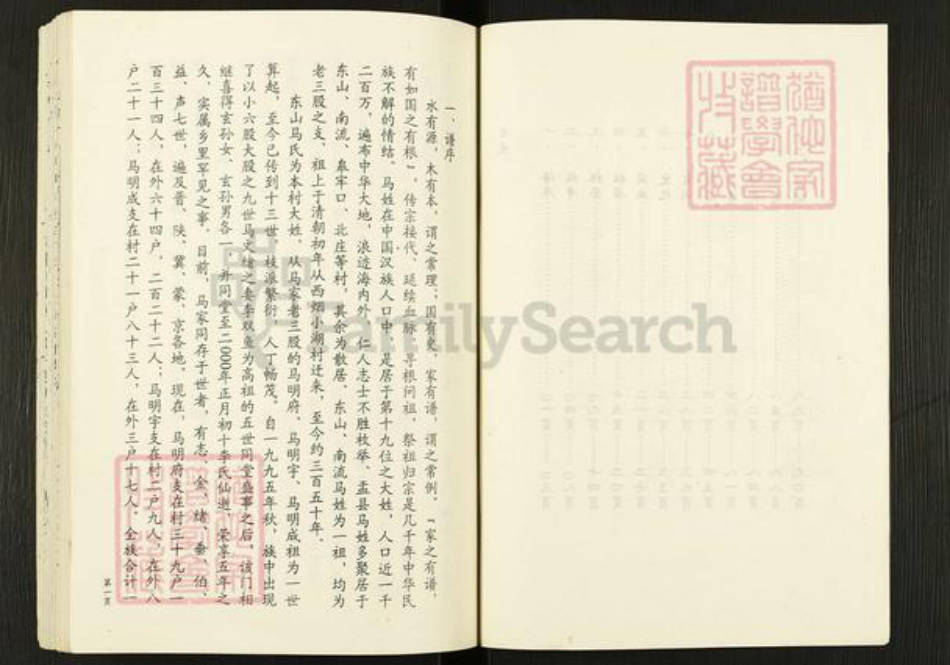 一、谱序
水有源，木有本，谓之常理；国有史，家有谱，谓之常例。“家之有谱，
有如国之有根”，传宗接代、延续血脉、寻根问祖、祭祖归宗是几千年中华民
族不解的情结。马姓在中国汉族人口中，是居于第十九位之大姓，人口近一千
二百万，遍布中华大地，浪迹海内外，仁人志士不胜枚举。盂县马姓多聚居于
东山、南流、牢口、北庄等村，其余为散居。东山、南流马姓为一祖，均为
老三股之支，祖上于清朝初年从西烟小湖村迁来，至今约三百五十年。
东山马氏为本村大姓，从马家老三股的马明府、马明宇、马明成祖为一世
算起，至今已传到十三世，枝派繁衍，人丁畅茂。自一九九五年秋，族中出现
了以小六股大股之九世马文绪之妻李双鱼为高祖的五世同堂盛事之后，该门相
继喜得玄孙女、玄孙男各一，并同堂至2000年正月初十李氏仙逝，荣享五年之
久，实属乡里罕见之事。目前，马家同存于世者，有志、金、绪、垂、伯、
益、声七世，遍及晋、陕、冀、蒙、京各地。现在，马明府支在村三十九户一
百三十四人，在外六十四户，二百二十二人；马明宇支在村二户九人，在外八
户二十一人；马明成支在村二十一户八十三人，在外三户十七人。全族合计一
第一页
谱学会
收藏
FamilySearch